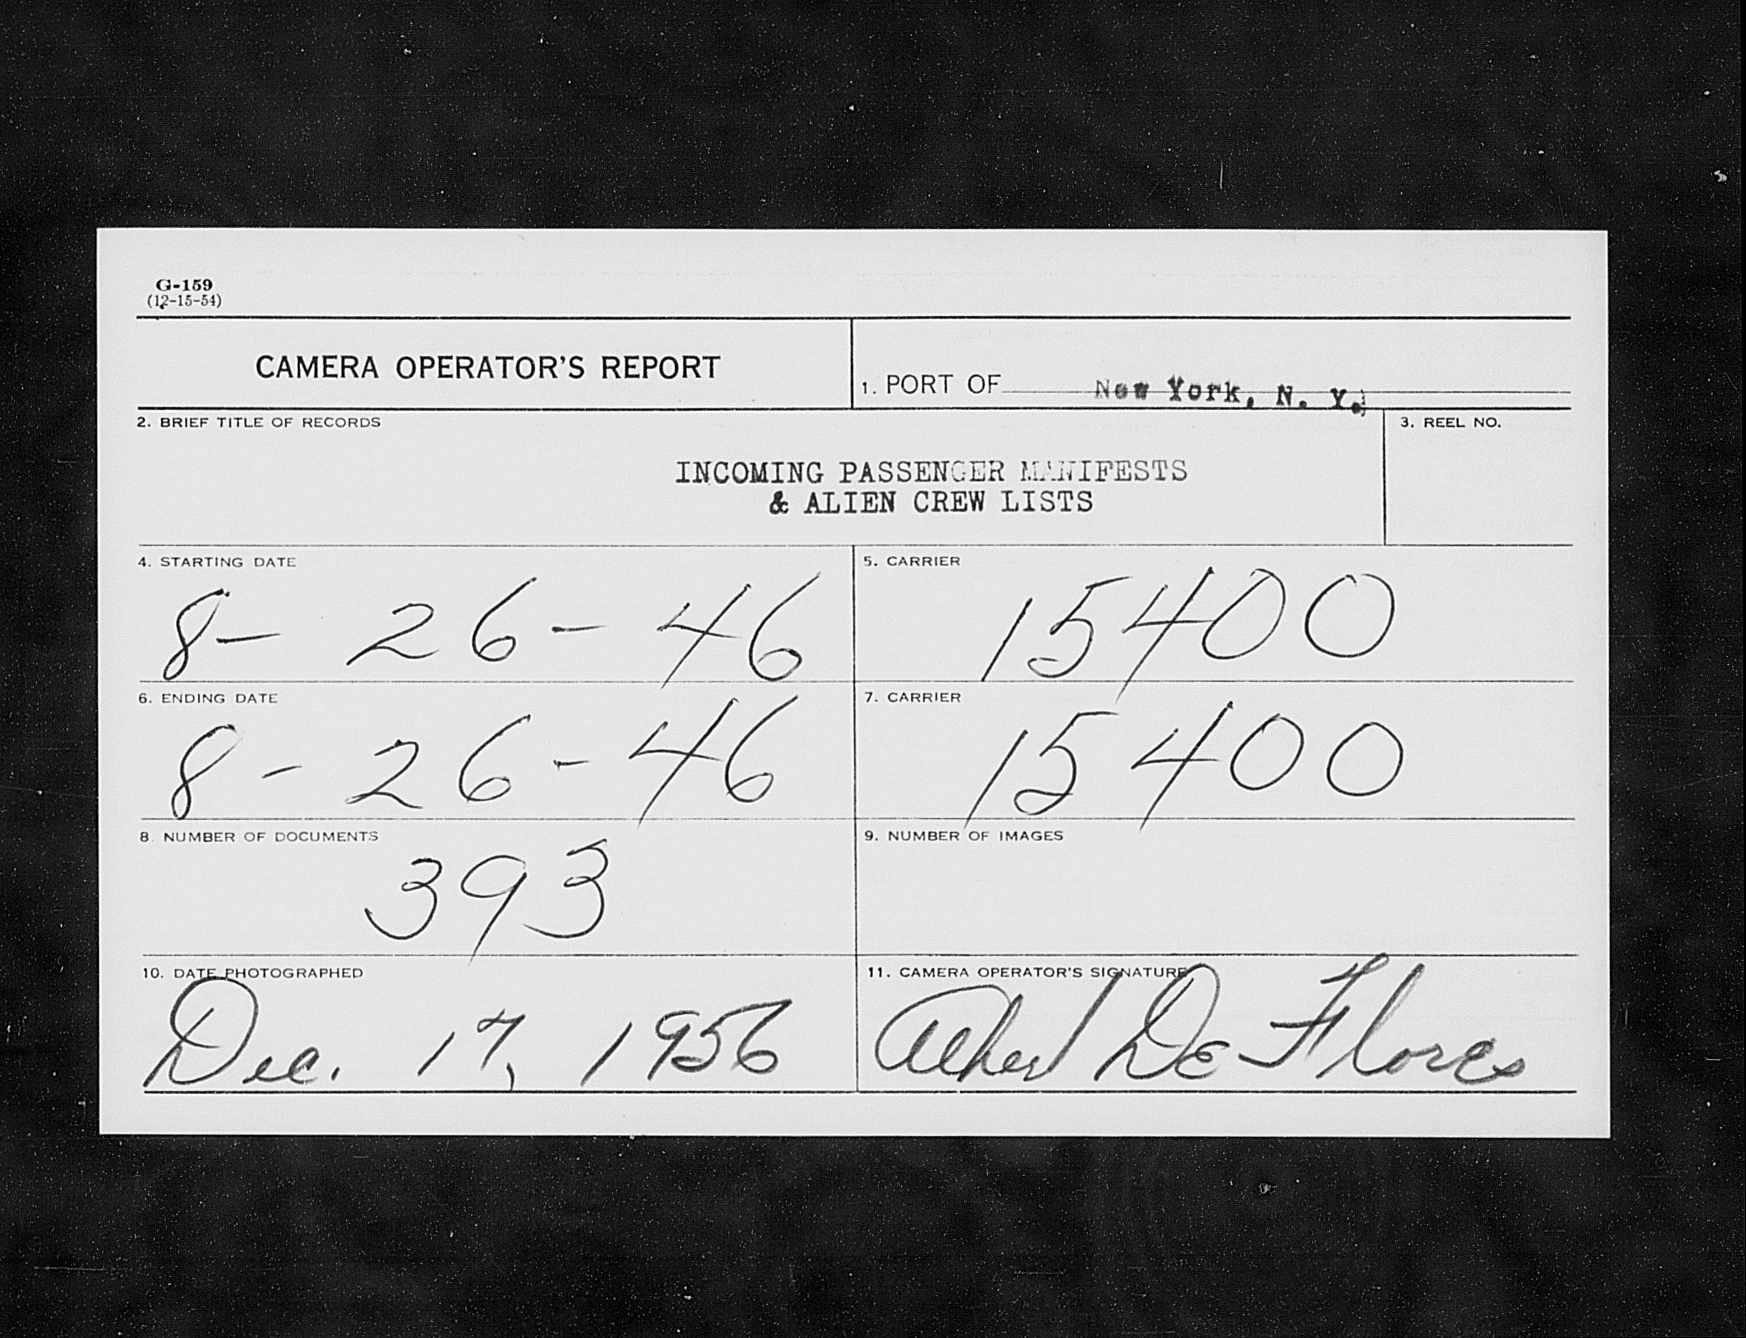 G-159
(12-15-54)
CAMERA OPERATOR'S REPORT
1. PORT OF New York, N. Y.
2. BRIEF TITLE OF RECORDS
3. REEL NO.
INCOMING PASSENGER MANIFESTS
& ALIEN CREW LISTS
4. STARTING DATE
8- 26-46
5. CARRIER
15400
6. ENDING DATE
8-26-46
7. CARRIER
15400
8 NUMBER OF DOCUMENTS
393
9. NUMBER OF IMAGES
10. DATE PHOTOGRAPHED
Dec. 17, 1956
11. CAMERA OPERATOR'S SIGNATURE
De Flores